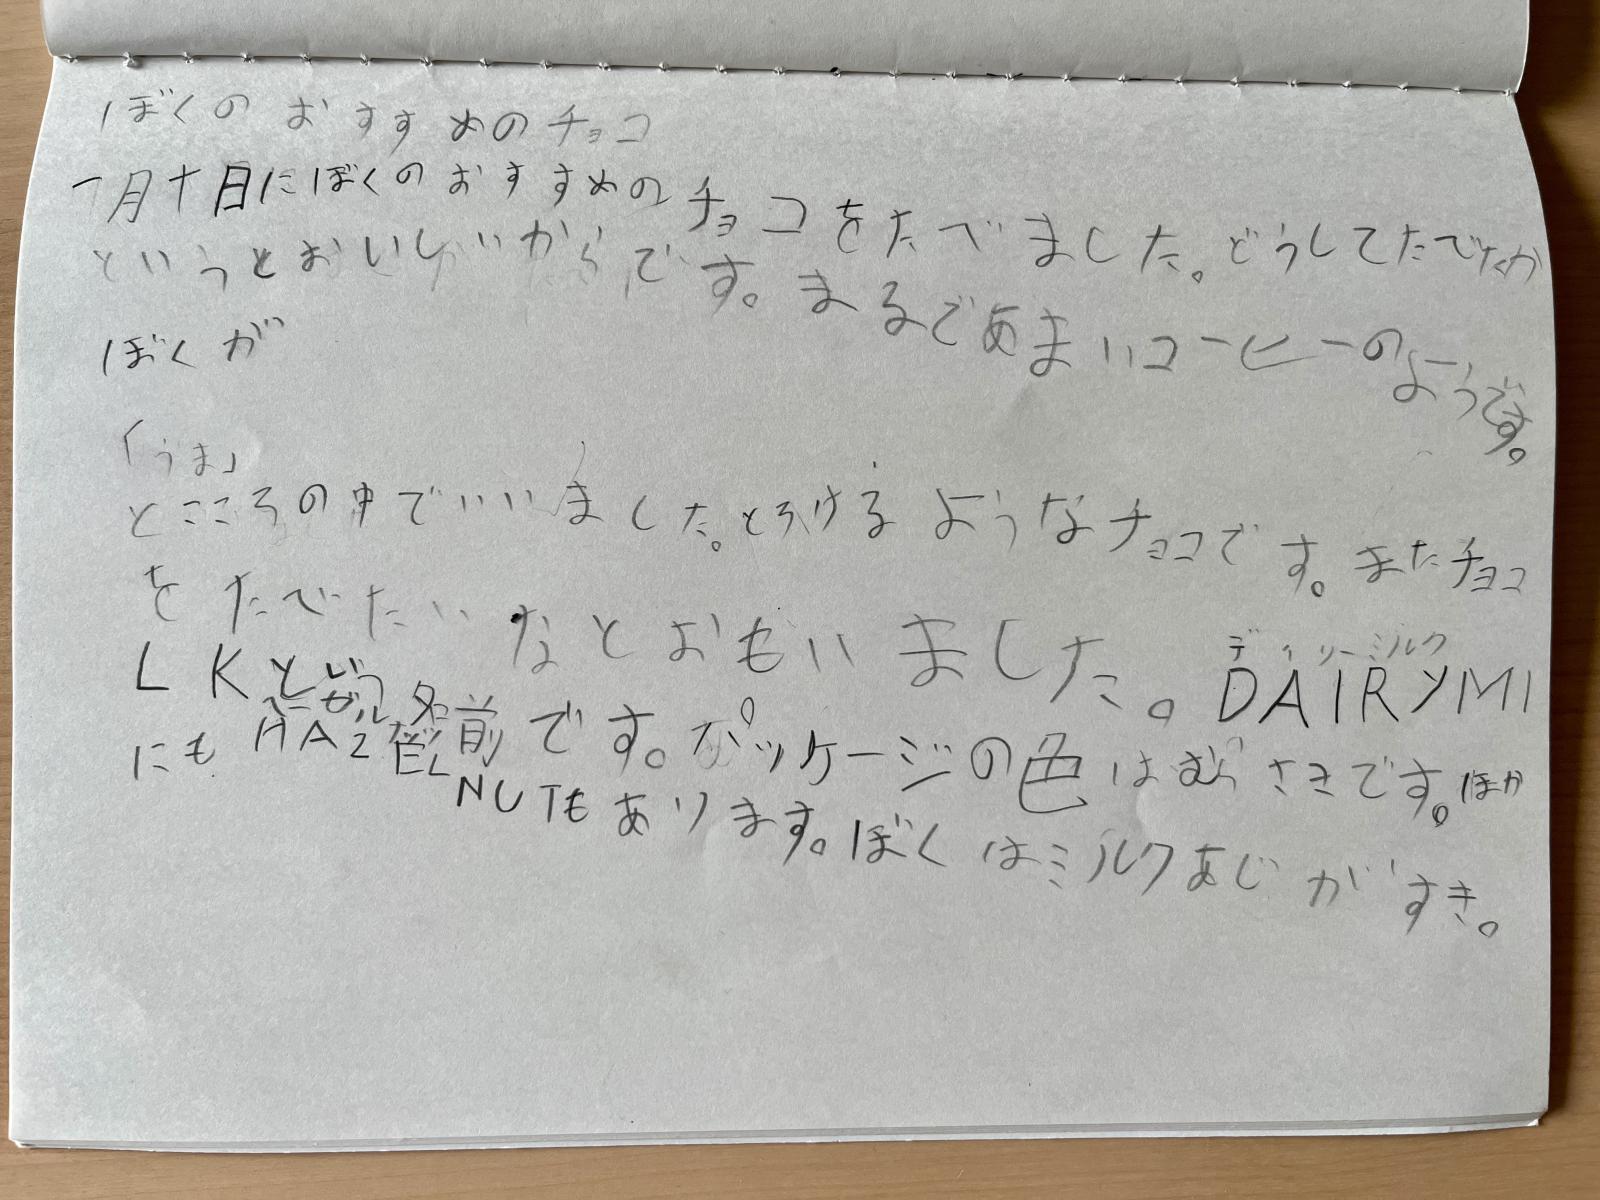 ぼくのおすすめのチョコ
一月十日にぼくのおすすめのチョコをたべました。どうしてたべたか
というとおいしいからです。まるであまいコーヒーのようです。
ぼくが
「うま」
とこころの中でいいました。とろけるようなチョコです。またチョコ
をたべたいなとおもいました。DAIRYMI
デイリーミルク
LKという名前です。パッケージの色はむらさきです。ほか
ヘーゼルナッツ
にもHAZELNUTもあります。ぼくはミルクあじがすき。